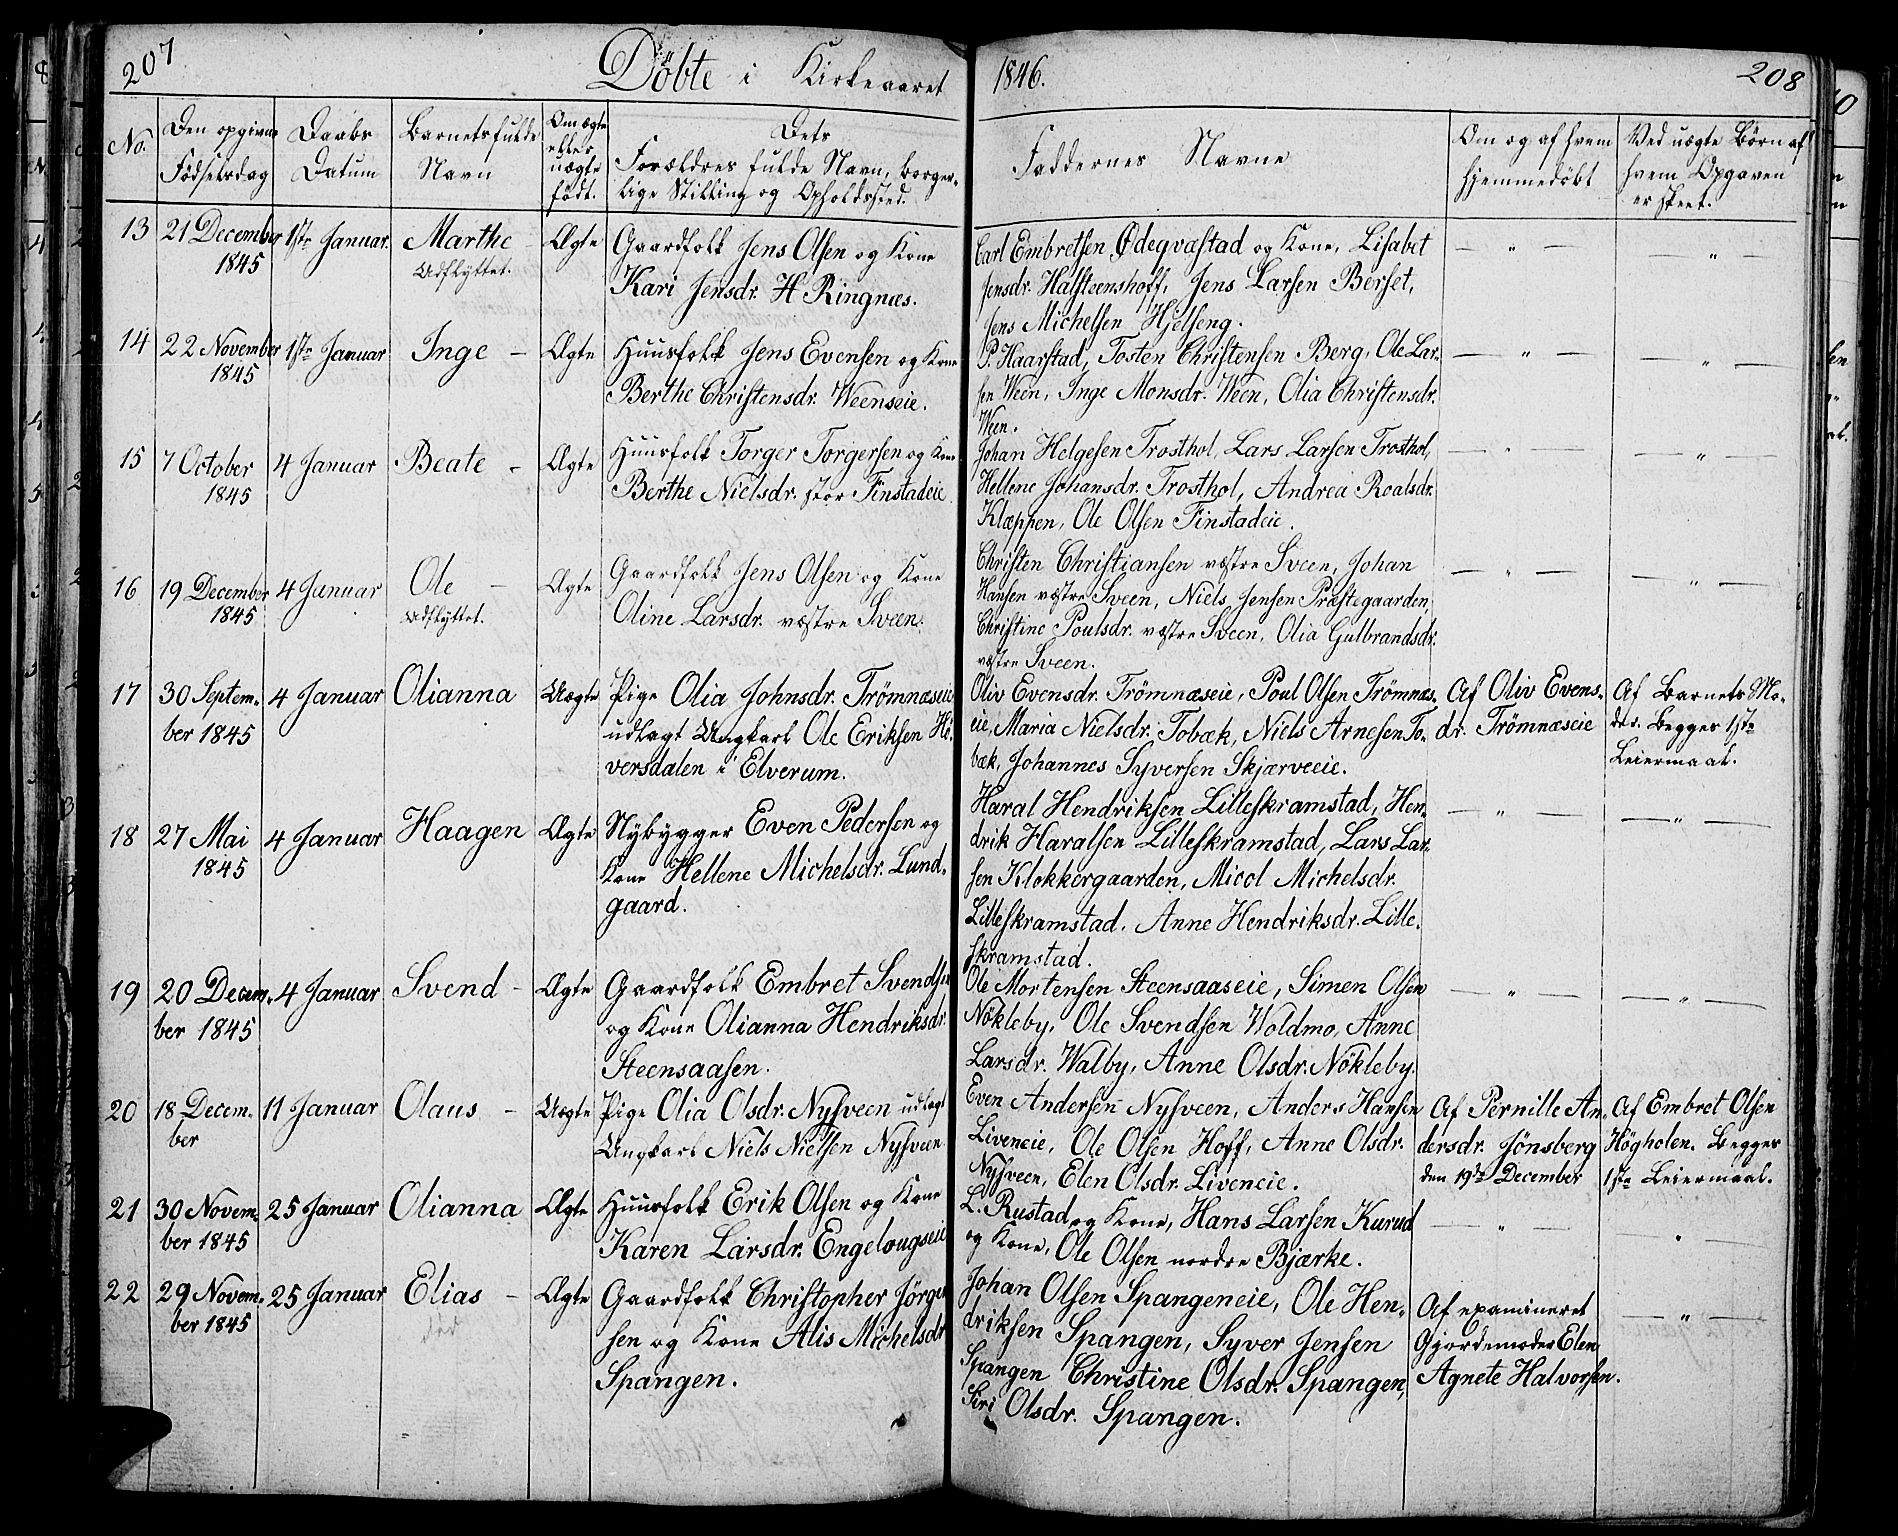 207
Döbte i Kirkeaaret
1846.
208
No.
Den opgivne Fødselsdag
Daabs Datum
Barnets fulde Navn
Om ægte eller uægte født.
Dets Forældres fulde Navn, borgerlige Stilling og Opholdssted.
Faddernes Navne
Om og af hvem hjemmedöbt
Ved uægte Börn af hvem Opgaven er skeet.
13 21 December 1ste Januar. Marthe - Ægte Gaardfolk Jens Olsen og Kone Carl Embretsen Ødeqvæstad og Kone, Lisabet — " — — " —
1845 Udflyttet. Kari Jensdr. H Ringnæs. Jensdr. Halsteenshoff, Jens Larsen Berset,
Jens Michelsen Hjelseng.
14 22 November 1ste Januar Inge - Ægte Huusfolk Jens Evensen og Kone P. Haarstad, Tosten Christensen Berg, Ole Lar- — " — — " —
1845 Berthe Christensdr. Weenseie. sen Ween, Inge Monsdr. Ween, Olia Christensdr.
Ween.
15 7 October 4 Januar Beate - Ægte Huusfolk Torger Torgersen og Kone Johan Helgesen Trosthol, Lars Larsen Trosthol, — " — — " —
1845 Berthe Nielsdr. stor Finstadeie Hellene Johansdr. Trosthol, Andrea Roalsdr.
Klæppen, Ole Olsen Finstadeie.
16 19 December 4 Januar Ole - Ægte Gaardfolk Jens Olsen og Kone Christen Christiansen væstre Sveen, Johan — " — — " —
1845 Udflyttet. Oline Larsdr. væstre Sveen. Hansen væstre Sveen, Niels Jensen Præstegaarden,
Christine Poulsdr. væstre Sveen, Olia Gulbrandsdr.
væstre Sveen.
17 30 Septem- 4 Januar Olianna Uægte Pige Olia Johnsdr. Trömnæseie Oliv Evensdr. Trömnæseie, Poul Olsen Trömnæs- Af Oliv Evens- Af Barnets Mo-
ber 1845 udlagt Ungkarl Ole Eriksen He- eie, Maria Nielsdr. Tobæk, Niels Arnesen To- dr. Trömnæseie der. Begges 1ste
versdalen i Elverum. bæk, Johannes Syversen Skjærveeie. Leiermaal.
18 27 Mai 4 Januar Haagen Ægte Nybygger Even Pedersen og Haral Hendriksen Lilleskramstad, Hen- — " — — " —
1845 Kone Hellene Michelsdr. Lund- drik Haralsen Lilleskramstad, Lars Lar-
gaard. sen Klokkergaarden, Micol Michelsdr.
Lilleskramstad, Anne Hendriksdr. Lille-
skramstad.
19 20 Decem- 4 Januar Svend - Ægte Gaardfolk Embret Svendsen Ole Mortensen Steensaaseie, Simen Olsen — " — — " —
ber 1845 og Kone Olianna Hendriksdr. Nökleby, Ole Svendsen Woldmo, Anne
Steensaasen. Larsdr. Walby, Anne Olsdr. Nökleby.
20 18 Decem- 11 Januar Olaus - Uægte Pige Olia Olsdr. Nysveen udlagt Even Andersen Nysveen, Anders Hansen Af Pernille An- Af Embret Olsen
ber Ungkarl Niels Nielsen Nysveen Liveneie, Ole Olsen Hoff, Anne Olsdr. dersdr. Jönsberg Högholen. Begges
Nysveen, Elen Olsdr. Liveneie. den 19de December 1ste Leiermaal.
21 30 Novem- 25 Januar Olianna Ægte Huusfolk Erik Olsen og Kone L. Rustad og Kone, Hans Larsen Kurud — " — — " —
ber 1845 Karen Larsdr. Engelougseie og Kone, Ole Olsen nordre Bjærke.
22 29 Novem- 25 Januar Elias - Ægte Gaardfolk Christopher Jörgen- Johan Olsen Spangeneie, Ole Hen- Af examineret — " —
ber 1845 död sen og Kone Alis Michelsdr. driksen Spangen, Syver Jensen Gjordemoder Elen
Spangen. Spangen Christine Olsdr. Spangen, Agnete Halvorsen.
Siri Olsdr. Spangen.